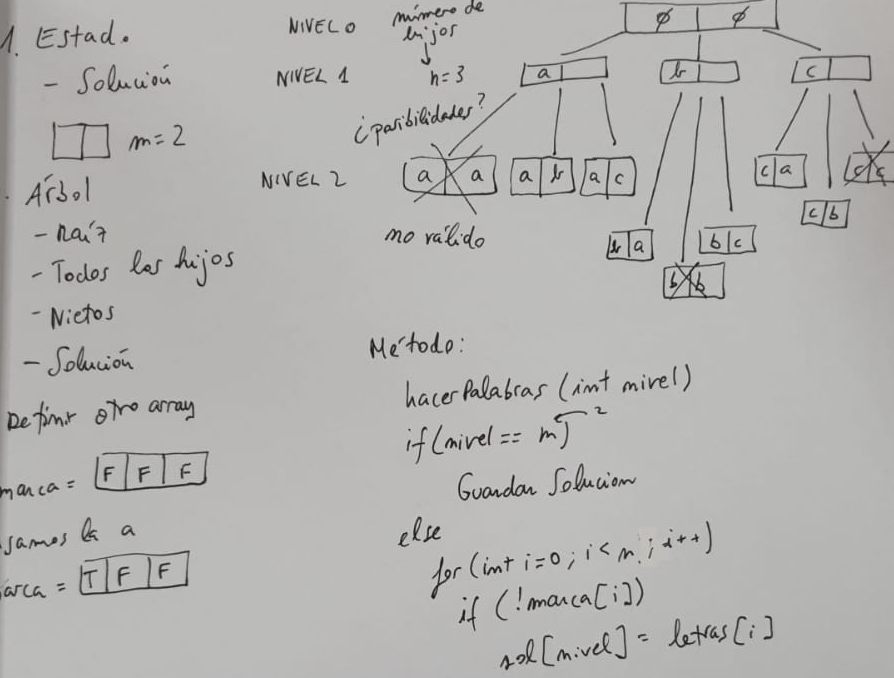 1. Estad.
- Solución
m=2
Árbol
- raíz
- Todos los hijos
- Nietos
- Solución
Definir otro array
marca = F F F
samos la a
arca = T F F
NIVEL 0
número de
hijos
Ø Ø
NIVEL 1
n=3
a
b
c
¿posibilidades?
NIVEL 2
a a
a b
a c
b a
b b
b c
c a
c b
c c
no válido
Método:
hacerPalabras (int nivel)
if (nivel == m) 2
Guardar Solucion
else
for (int i=0; i< n; i++)
if (!marca[i])
sol[nivel] = letras[i]